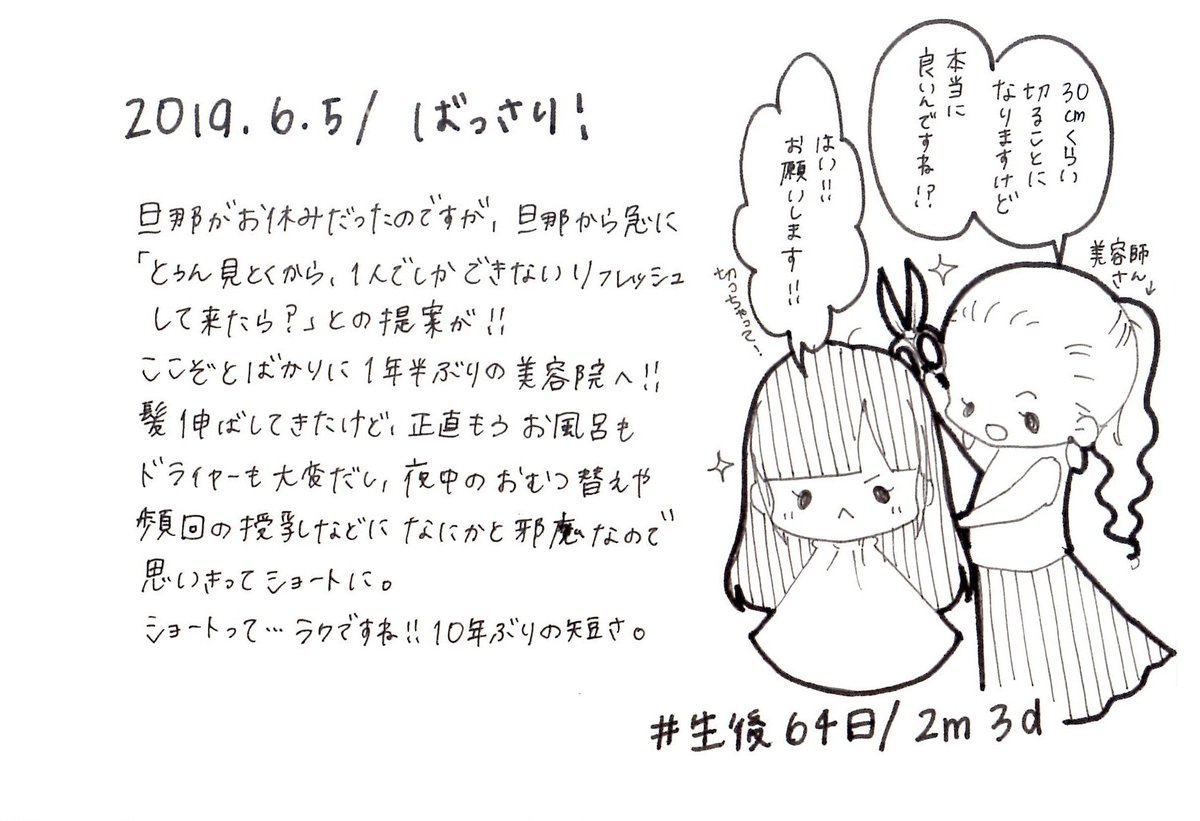 2019.6.5/ ばっさり!
旦那がお休みだったのですが、旦那から急に
「とぅん見とくから、1人でしかできないリフレッシュ
して来たら?」との提案が!!
ここぞとばかりに1年半ぶりの美容院へ!!
髪伸ばしてきたけど、正直もうお風呂も
ドライヤーも大変だし、夜中のおむつ替えや
頻回の授乳などになにかと邪魔なので
思いきってショートに。
ショートって…ラクですね!!10年ぶりの短さ。
30cmくらい
切ることに
なりますけど
本当に
良いんですね!?
はい!!
お願いします!!
切っちゃって〜!
美容師
さん
#生後64日/2m3d